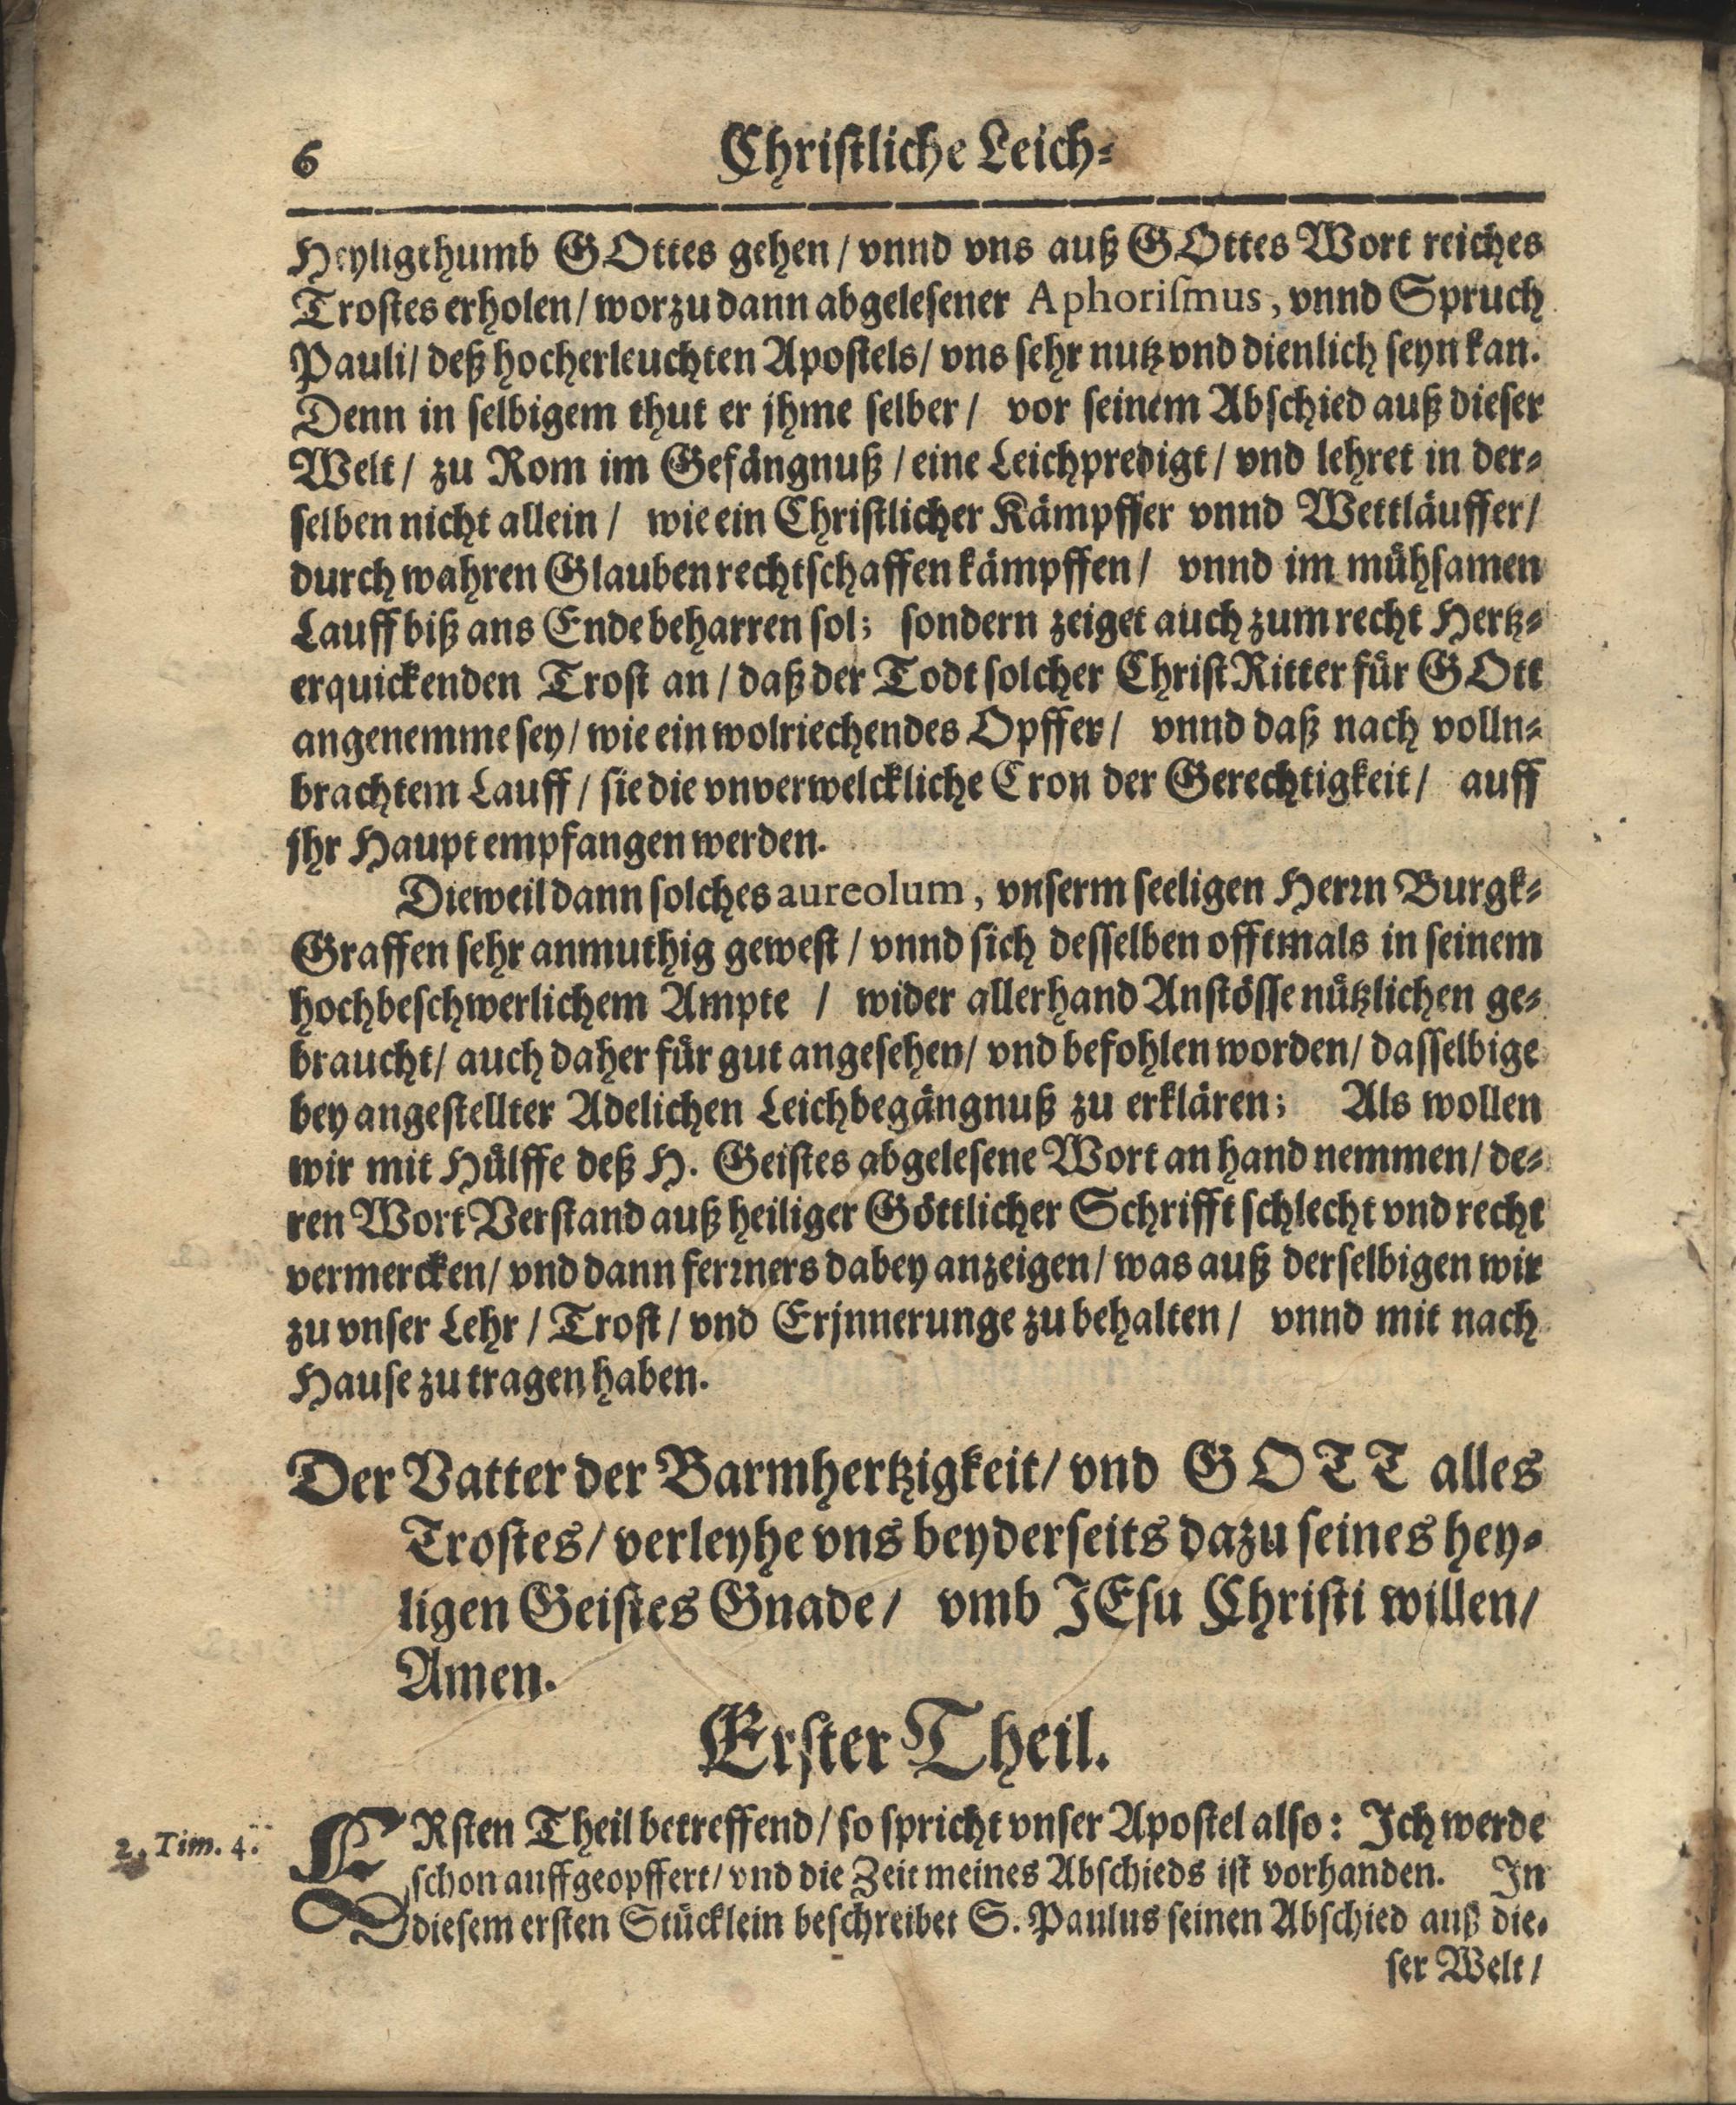 6 Christliche Leich-
Heyligthumb GOttes gehen / vnnd vns auß GOttes Wort reiches
Trostes erholen / worzu dann abgelesener Aphorismus, vnnd Spruch
Pauli / deß hocherleuchten Apostels / vns sehr nutz vnd dienlich seyn kan.
Denn in selbigem thut er jhme selber / vor seinem Abschied auß dieser
Welt / zu Rom im Gefängnuß / eine Leichpredigt / vnd lehret in der-
selben nicht allein / wie ein Christlicher Kämpffer vnnd Wettläuffer /
durch wahren Glauben rechtschaffen kämpffen / vnnd im mühsamen
Lauff biß ans Ende beharren sol; sondern zeiget auch zum recht Hertz-
erquickenden Trost an / daß der Todt solcher Christ Ritter für GOtt
angenemme sey / wie ein wolriechendes Opffer / vnnd daß nach volln-
brachtem Lauff / sie die vnverwelckliche Cron der Gerechtigkeit / auff
jhr Haupt empfangen werden.
Dieweil dann solches aureolum, vnserm seeligen Herrn Burgk-
Graffen sehr anmuthig gewest / vnnd sich desselben offtmals in seinem
hochbeschwerlichem Ampte / wider allerhand Anstösse nützlichen ge-
braucht / auch daher für gut angesehen / vnd befohlen worden / dasselbige
bey angestellter Adelichen Leichbegängnuß zu erklären; Als wollen
wir mit Hülffe deß H. Geistes abgelesene Wort an hand nemmen / de-
ren Wort Verstand auß heiliger Göttlicher Schrifft schlecht vnd recht
vermercken / vnd dann ferrners dabey anzeigen / was auß derselbigen wir
zu vnser Lehr / Trost / vnd Erjnnerunge zu behalten / vnnd mit nach
Hause zu tragen haben.
Der Vatter der Barmhertzigkeit / vnd GOTT alles
Trostes / verleyhe vns beyderseits dazu seines hey-
ligen Geistes Gnade / vmb JEsu Christi willen /
Amen.
Erster Theil.
2. Tim. 4.
ERsten Theil betreffend / so spricht vnser Apostel also: Jch werde
schon auffgeopffert / vnd die Zeit meines Abschieds ist vorhanden. Jn
diesem ersten Stücklein beschreibet S. Paulus seinen Abschied auß die-
ser Welt /